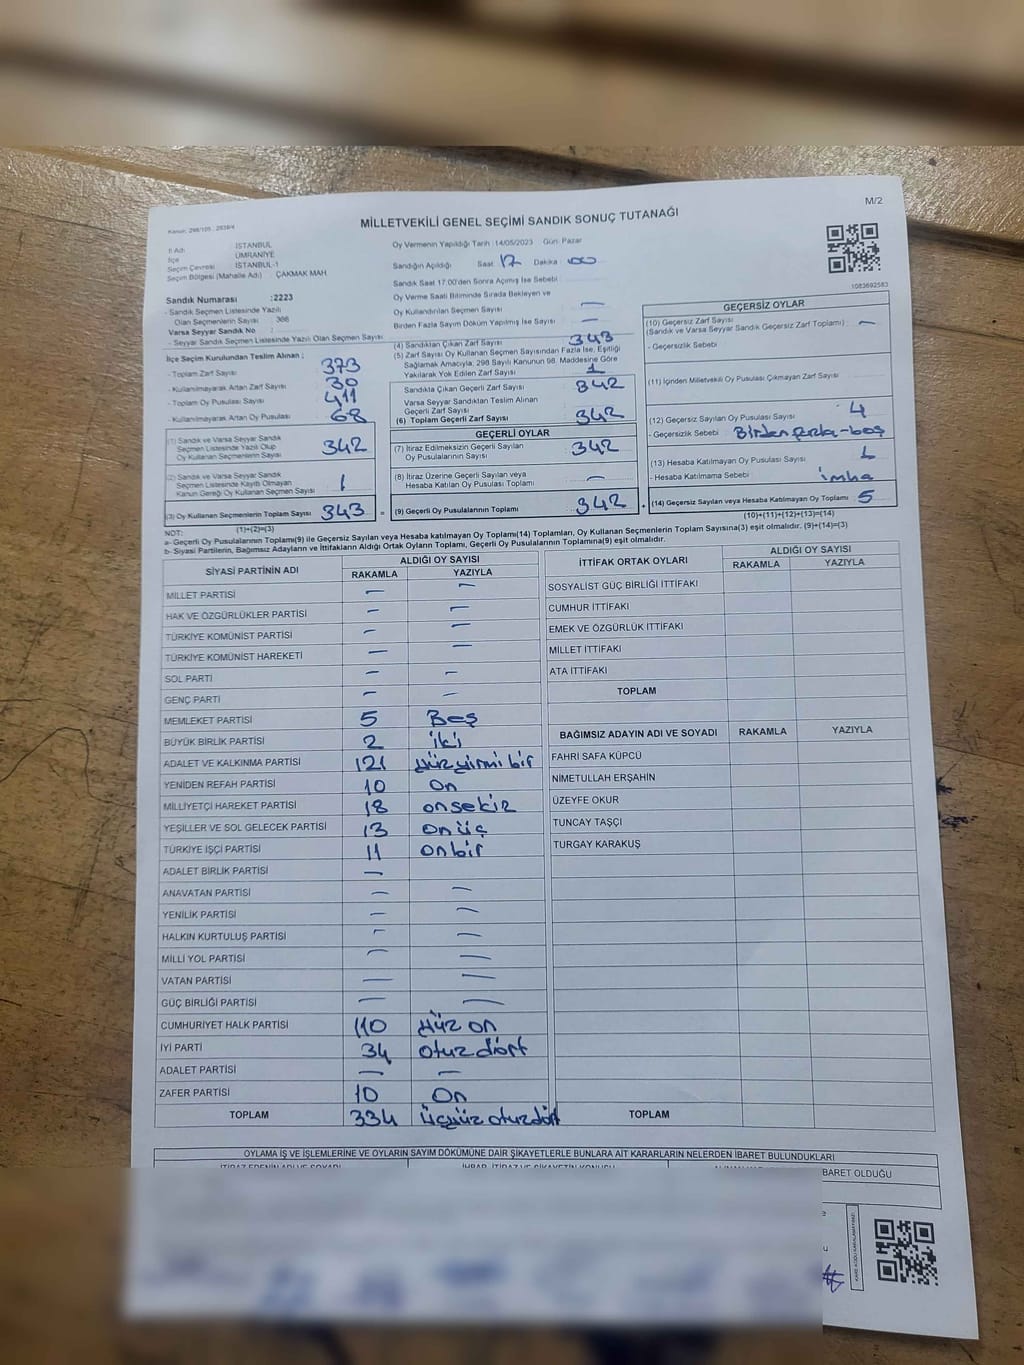 M/2
MİLLETVEKİLİ GENEL SEÇİMİ SANDIK SONUÇ TUTANAĞI
İl Adı İSTANBUL
İlçe ÜMRANİYE
Seçim Çevresi İSTANBUL-1
Seçim Bölgesi (Mahalle Adı) ÇAKMAK MAH.
Sandık Numarası :2223
- Sandık Seçmen Listesinde Yazılı
Olan Seçmenlerin Sayısı : 366
Varsa Seyyar Sandık No :
- Seyyar Sandık Seçmen Listesinde Yazılı Olan Seçmen Sayısı
İlçe Seçim Kurulundan Teslim Alınan ;
- Toplam Zarf Sayısı 373
- Kullanılmayarak Artan Zarf Sayısı 30
- Toplam Oy Pusulası Sayısı 411
- Kullanılmayarak Artan Oy Pusulası 68
(1) Sandık ve Varsa Seyyar Sandık
Seçmen Listesinde Yazılı Olup
Oy Kullanan Seçmenlerin Sayısı 342
(2) Sandık ve Varsa Seyyar Sandık
Seçmen Listesinde Kaydı Olmayan
Kanun Gereği Oy Kullanan Seçmen Sayısı 1
(3) Oy Kullanan Seçmenlerin Toplam Sayısı 343 =
(1)+(2)=(3)
Oy Vermenin Yapıldığı Tarih :14/05/2023 Gün: Pazar
Sandığın Açıldığı Saat 17 Dakika :00
Sandık Saat 17.00'den Sonra Açılmış İse Sebebi
Oy Verme Saati Bitiminde Sırada Bekleyen ve
Oy Kullandırılan Seçmen Sayısı —
Birden Fazla Sayım Döküm Yapılmış İse Sayısı —
(4) Sandıktan Çıkan Zarf Sayısı 343
(5) Zarf Sayısı Oy Kullanan Seçmen Sayısından Fazla İse, Eşitliği
Sağlamak Amacıyla; 298 Sayılı Kanunun 98. Maddesine Göre
Yakılarak Yok Edilen Zarf Sayısı 1
Sandıkta Çıkan Geçerli Zarf Sayısı 342
Varsa Seyyar Sandıktan Teslim Alınan
Geçerli Zarf Sayısı
(6) Toplam Geçerli Zarf Sayısı 342
GEÇERLİ OYLAR
(7) İtiraz Edilmeksizin Geçerli Sayılan
Oy Pusulalarının Sayısı 342
(8) İtiraz Üzerine Geçerli Sayılan veya
Hesaba Katılan Oy Pusulası Toplamı —
(9) Geçerli Oy Pusulalarının Toplamı 342 +
1083692583
GEÇERSİZ OYLAR
(10) Geçersiz Zarf Sayısı
(Sandık ve Varsa Seyyar Sandık Geçersiz Zarf Toplamı) —
- Geçersizlik Sebebi
(11) İçinden Milletvekili Oy Pusulası Çıkmayan Zarf Sayısı
(12) Geçersiz Sayılan Oy Pusulası Sayısı 4
- Geçersizlik Sebebi Birden fazla-boş
(13) Hesaba Katılmayan Oy Pusulası Sayısı 1
- Hesaba Katılmama Sebebi imha
(14) Geçersiz Sayılan veya Hesaba Katılmayan Oy Toplamı 5
(10)+(11)+(12)+(13)=(14)
NOT:
a- Geçerli Oy Pusulalarının Toplamı(9) ile Geçersiz Sayılan veya Hesaba katılmayan Oy Toplamı(14) Toplamları, Oy Kullanan Seçmenlerin Toplam Sayısına(3) eşit olmalıdır. (9)+(14)=(3)
b- Siyasi Partilerin, Bağımsız Adayların ve İttifakların Aldığı Ortak Oyların Toplamı, Geçerli Oy Pusulalarının Toplamına(9) eşit olmalıdır.
SİYASİ PARTİNİN ADI ALDIĞI OY SAYISI
RAKAMLA YAZIYLA
MİLLET PARTİSİ — —
HAK VE ÖZGÜRLÜKLER PARTİSİ — —
TÜRKİYE KOMÜNİST PARTİSİ — —
TÜRKİYE KOMÜNİST HAREKETİ — —
SOL PARTİ — —
GENÇ PARTİ — —
MEMLEKET PARTİSİ 5 Beş
BÜYÜK BİRLİK PARTİSİ 2 iki
ADALET VE KALKINMA PARTİSİ 121 yüzyirmi bir
YENİDEN REFAH PARTİSİ 10 On
MİLLİYETÇİ HAREKET PARTİSİ 18 onsekiz
YEŞİLLER VE SOL GELECEK PARTİSİ 13 onüç
TÜRKİYE İŞÇİ PARTİSİ 11 onbir
ADALET BİRLİK PARTİSİ —
ANAVATAN PARTİSİ — —
YENİLİK PARTİSİ — —
HALKIN KURTULUŞ PARTİSİ — —
MİLLİ YOL PARTİSİ — —
VATAN PARTİSİ — —
GÜÇ BİRLİĞİ PARTİSİ — —
CUMHURİYET HALK PARTİSİ 110 yüz on
İYİ PARTİ 34 otuz dört
ADALET PARTİSİ — —
ZAFER PARTİSİ 10 On
TOPLAM 334 üçyüz otuzdört
İTTİFAK ORTAK OYLARI ALDIĞI OY SAYISI
RAKAMLA YAZIYLA
SOSYALİST GÜÇ BİRLİĞİ İTTİFAKI
CUMHUR İTTİFAKI
EMEK VE ÖZGÜRLÜK İTTİFAKI
MİLLET İTTİFAKI
ATA İTTİFAKI
TOPLAM
BAĞIMSIZ ADAYIN ADI VE SOYADI RAKAMLA YAZIYLA
FAHRİ SAFA KÜPCÜ
NİMETULLAH ERŞAHİN
ÜZEYFE OKUR
TUNCAY TAŞÇI
TURGAY KARAKUŞ
TOPLAM
OYLAMA İŞ VE İŞLEMLERİNE VE OYLARIN SAYIM DÖKÜMÜNE DAİR ŞİKAYETLERLE BUNLARA AİT KARARLARIN NELERDEN İBARET BULUNDUKLARI
BARET OLDUĞU